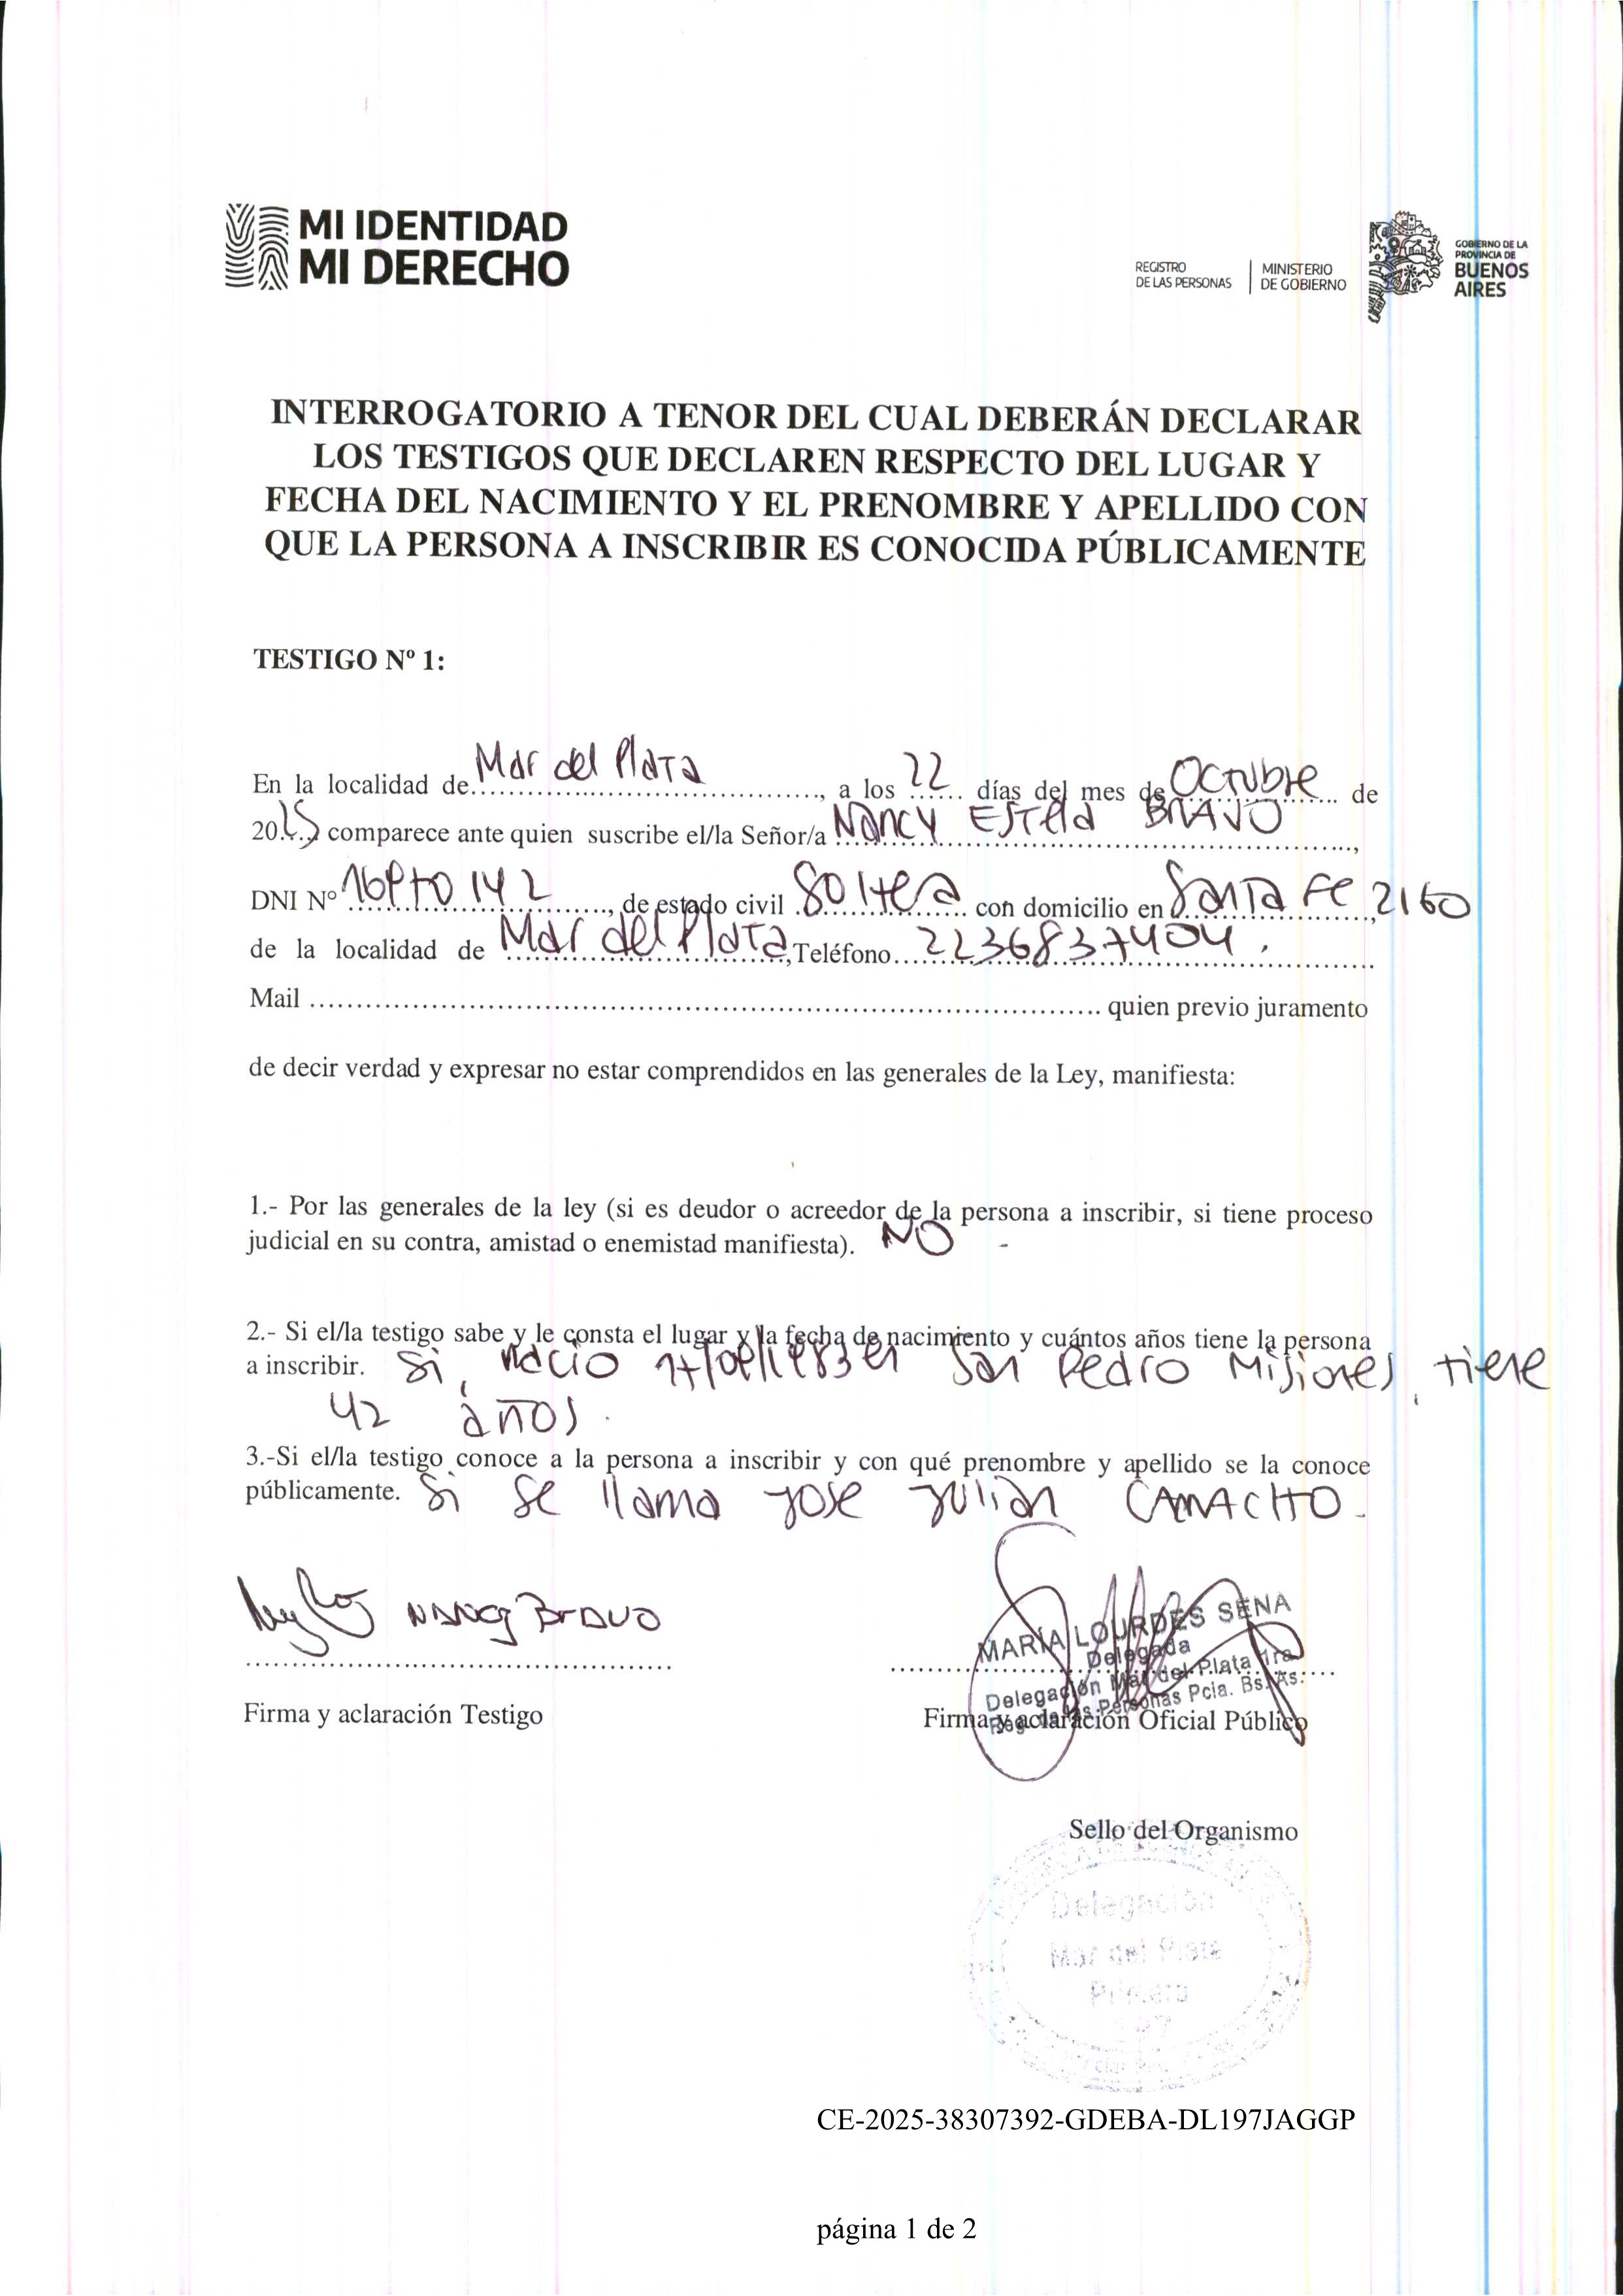 MI IDENTIDAD
MI DERECHO
REGISTRO
DE LAS PERSONAS
MINISTERIO
DE GOBIERNO
GOBIERNO DE LA
PROVINCIA DE
BUENOS
AIRES
INTERROGATORIO A TENOR DEL CUAL DEBERÁN DECLARAR
LOS TESTIGOS QUE DECLAREN RESPECTO DEL LUGAR Y
FECHA DEL NACIMIENTO Y EL PRENOMBRE Y APELLIDO CON
QUE LA PERSONA A INSCRIBIR ES CONOCIDA PÚBLICAMENTE
TESTIGO Nº 1:
En la localidad de Mar del Plata, a los 22 días del mes de Octubre de
2025 comparece ante quien suscribe el/la Señor/a Nancy Estela BRAVO,
DNI Nº, de estado civil Soltera con domicilio en Santa Fe, 2160
de la localidad de Mar del Plata, Teléfono 2236837404.
Mail quien previo juramento
de decir verdad y expresar no estar comprendidos en las generales de la Ley, manifiesta:
1.- Por las generales de la ley (si es deudor o acreedor de la persona a inscribir, si tiene proceso
judicial en su contra, amistad o enemistad manifiesta). NO -
2.- Si el/la testigo sabe y le consta el lugar y la fecha de nacimiento y cuántos años tiene la persona
a inscribir. Si, nacio en San Pedro Misiones, tiene
42 años.
3.-Si el/la testigo conoce a la persona a inscribir y con qué prenombre y apellido se la conoce
públicamente. Si se llama Jose Julian CAMACHO.
NANCY BRAVO
MARIA LOURDES SENA
Delegada
Delegación Mar del Plata 1ra
Reg. de las Personas Pcia. Bs. As.
Firma y aclaración Testigo
Firma y aclaración Oficial Público
Sello del Organismo
Delegación
Mar del Plata
Primera
CE-2025-38307392-GDEBA-DL197JAGGP
página 1 de 2